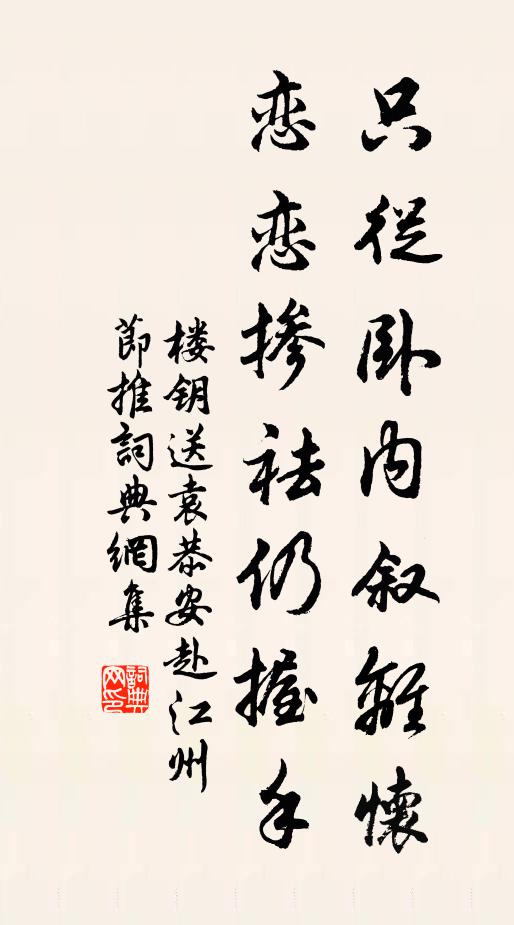 只從卧内叙離懷
恋恋掺祛仍握手
楼钥送袁恭安赴江州
節推詞典網集
詞典网印